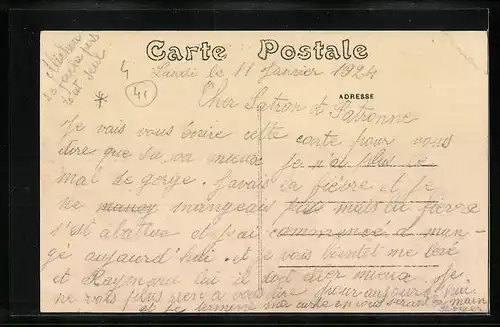 Carte Postale
Lundi le 11 Janvier 1924
ADRESSE
4
41
Cher Patron et Patronne
Je vais vous écrire cette carte pour vous
dire que sa va mieux je n'ai plus ce
mal de gorge. J'avais la fièvre et je
ne mangeais plus mais la fievre
s'est abattue et j'ai commence a man-
gé aujourd'hui. et je vais bientôt me levé
et Raymond lui il doit aller mieux. Je
ne vois plus rien a vous dire pour aujourd'hui
et je termine ma carte en vous serant la main